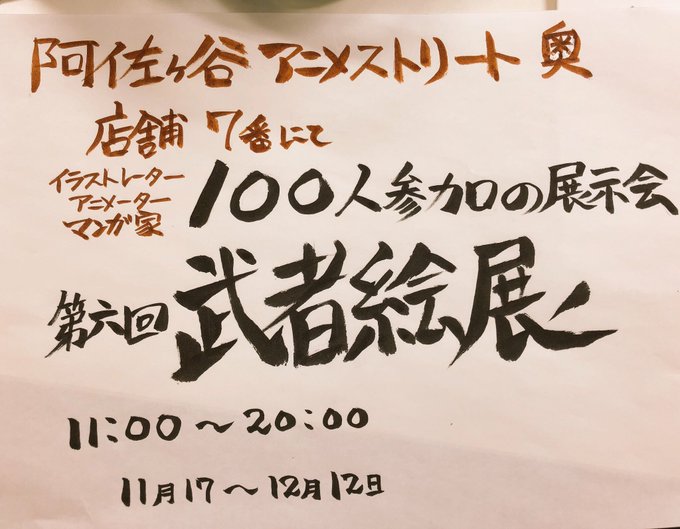 阿佐ヶ谷 アニメストリート 奥
店舗 7番にて
イラストレーター
アニメーター
マンガ家
100人参加の展示会
第六回 武者絵展
11:00〜20:00
11月17〜12月12日